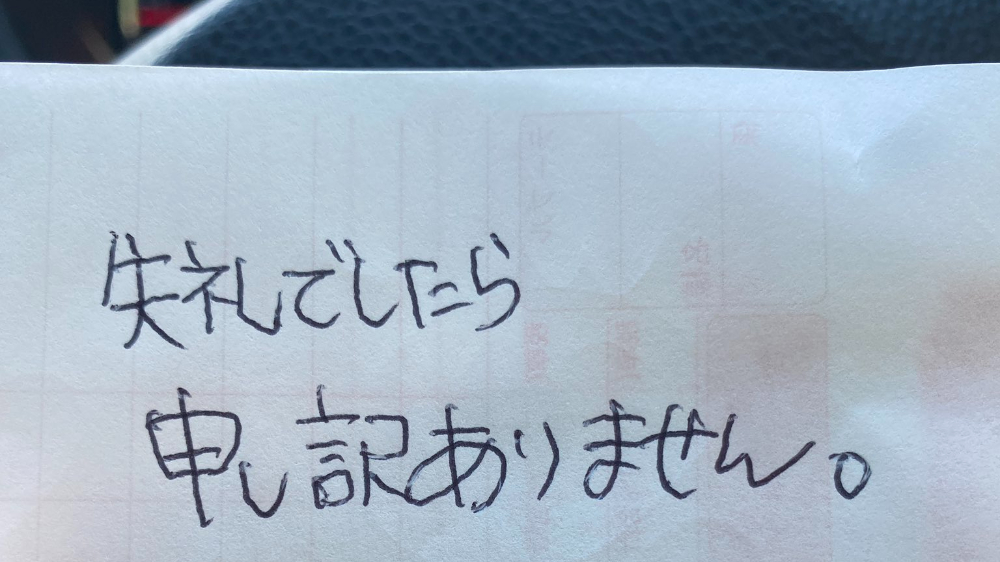 失礼でしたら
申し訳ありません。